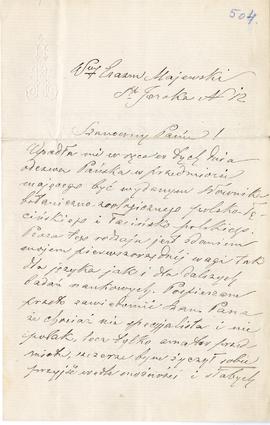 504.
Wny Erazm Majewski
Szanowny Panie!
Wpadła mi w ręce w tych dnia
odezwa Pańska w przedmiocie
mającego być wydanym słownika
botaniczno-zoologicznego polsko-ła
cińskiego i łacińsko polskiego.
Praca tego rodzaju jest zdaniem
mojem pierwszorzędnej wagi tak
dla języka jak i dla dalszych
badań naukowych. Pospieszam
przeto zawiadomić Szan. Pana
że chociaż nie specjalista i nie
polak, lecz tylko amator przed
miotu, szczerze bym życzył sobie
przyjść wedle możności i słabych